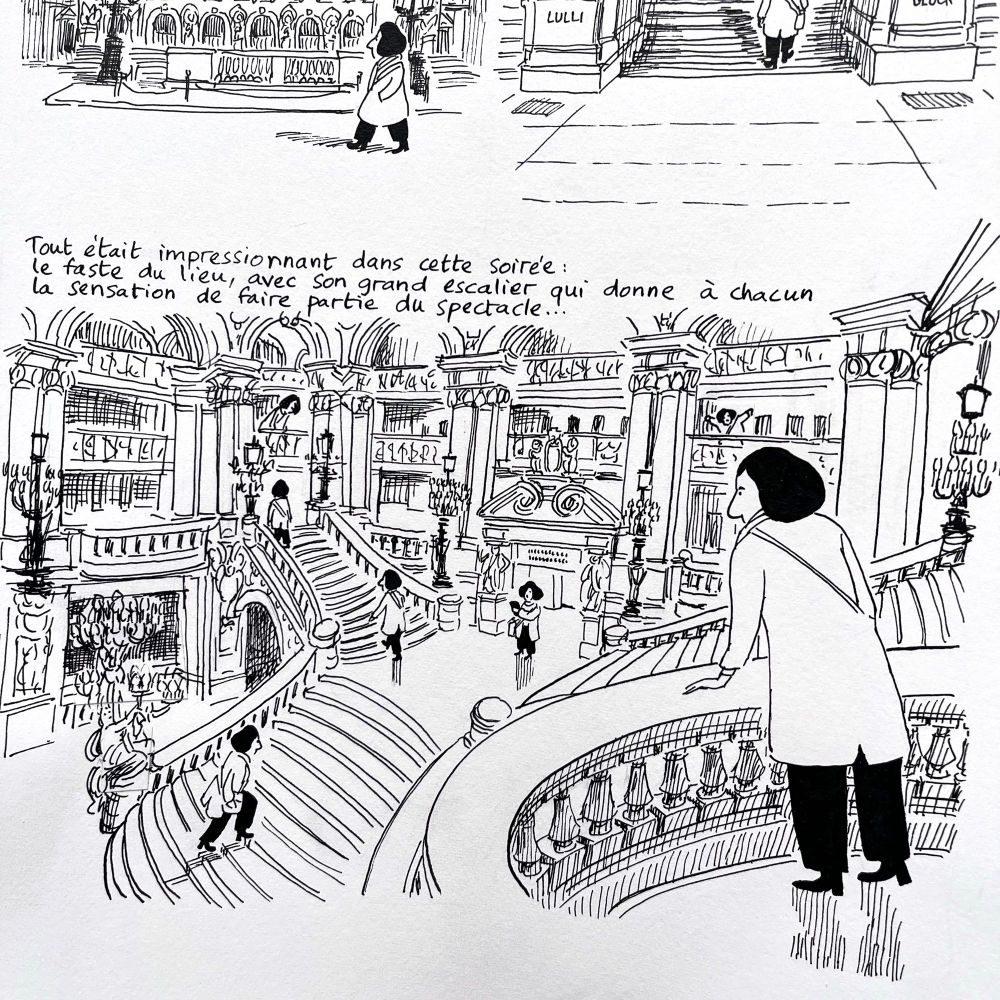 LULLI
GLUCK
Tout était impressionnant dans cette soirée :
le faste du lieu, avec son grand escalier qui donne à chacun
la sensation de faire partie du spectacle...